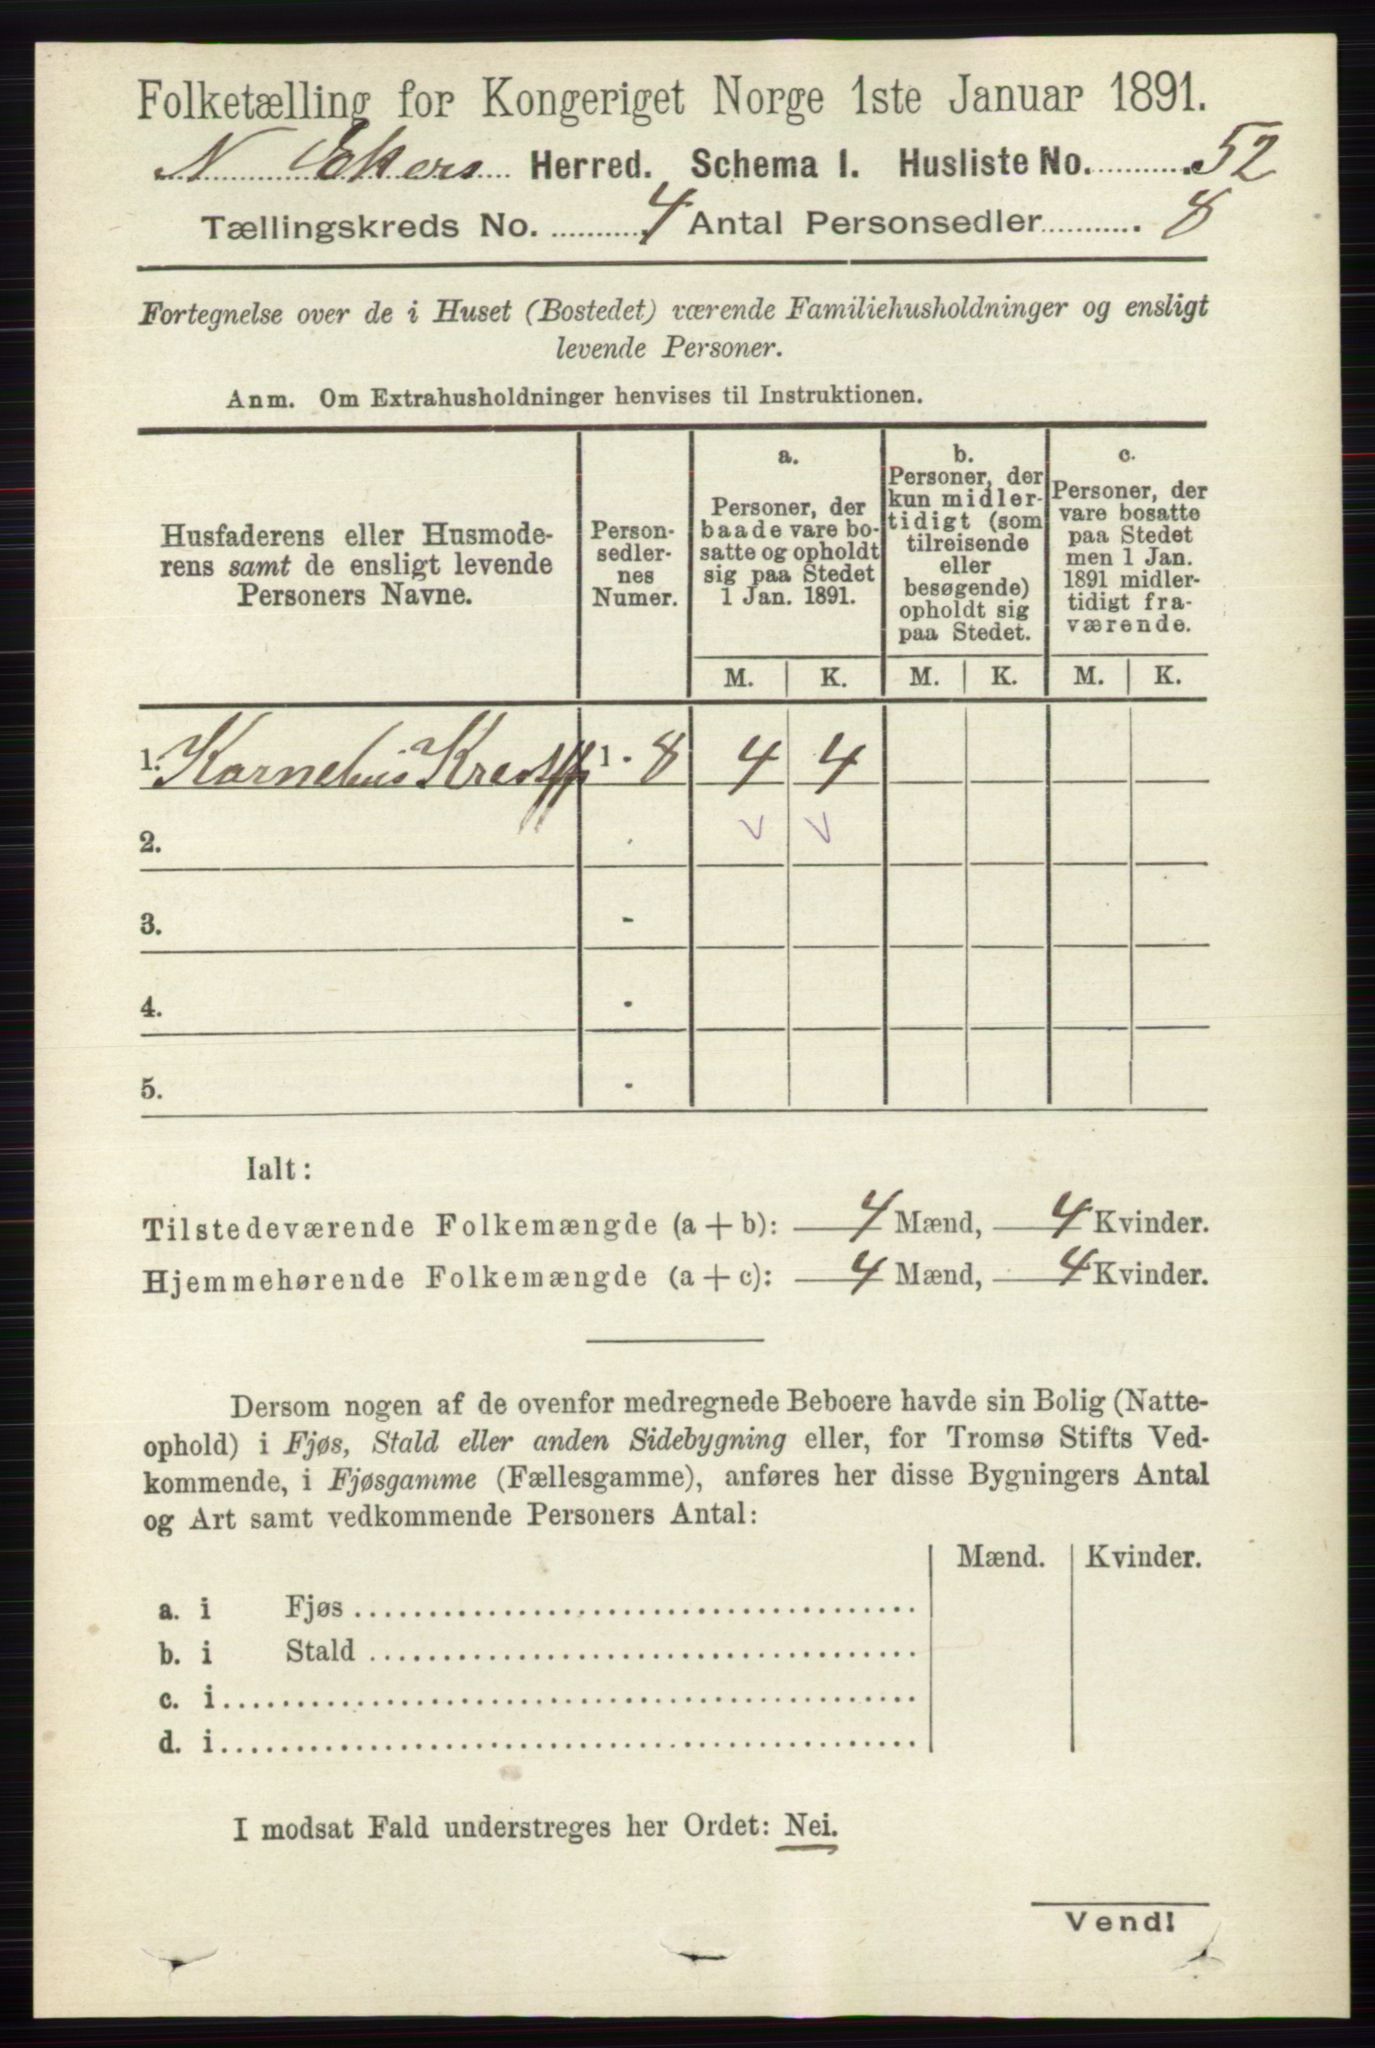 Folketælling for Kongeriget Norge 1ste Januar 1891.
N. Ekers Herred. Schema I. Husliste No. 52
Tællingskreds No. 4 Antal Personsedler 8
Fortegnelse over de i Huset (Bostedet) værende Familiehusholdninger og ensligt
levende Personer.
Anm. Om Extrahusholdninger henvises til Instruktionen.
Husfaderens eller Husmode-
rens samt de ensligt levende
Personers Navne.
Person-
sedler-
nes
Numer.
a.
Personer, der
baade vare bo-
satte og opholdt
sig paa Stedet
1 Jan. 1891.
b.
Personer, der
kun midler-
tidigt (som
tilreisende
eller
besøgende)
opholdt sig
paa Stedet.
c.
Personer, der
vare bosatte
paa Stedet
men 1 Jan.
1891 midler-
tidigt fra-
værende.
M. K. M. K. M. K.
1. Karnelius 1 - 8 4 4
2.
3. -
4.
5.
Ialt:
Tilstedeværende Folkemængde (a + b): 4 Mænd, 4 Kvinder.
Hjemmehørende Folkemængde (a + c): 4 Mænd, 4 Kvinder.
Dersom nogen af de ovenfor medregnede Beboere havde sin Bolig (Natte-
ophold) i Fjøs, Stald eller anden Sidebygning eller, for Tromsø Stifts Ved-
kommende, i Fjøsgamme (Fællesgamme), anføres her disse Bygningers Antal
og Art samt vedkommende Personers Antal:
Mænd. Kvinder.
a. i Fjøs
b. i Stald
c. i
d. i
I modsat Fald understreges her Ordet: Nei.
Vend!